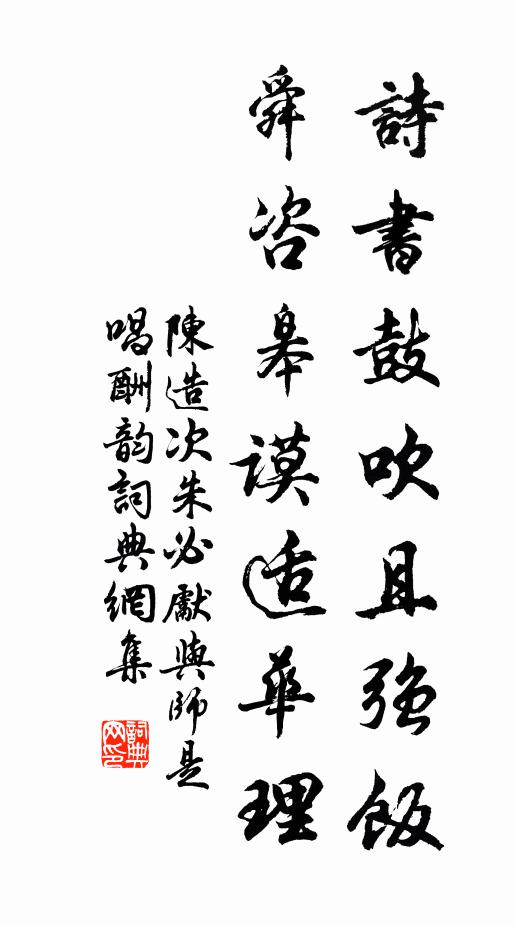 詩書鼓吹且強飯
舜咨皋謨适華理
陳造次朱必獻與師是
唱酬韵詞典網集
詞典網印